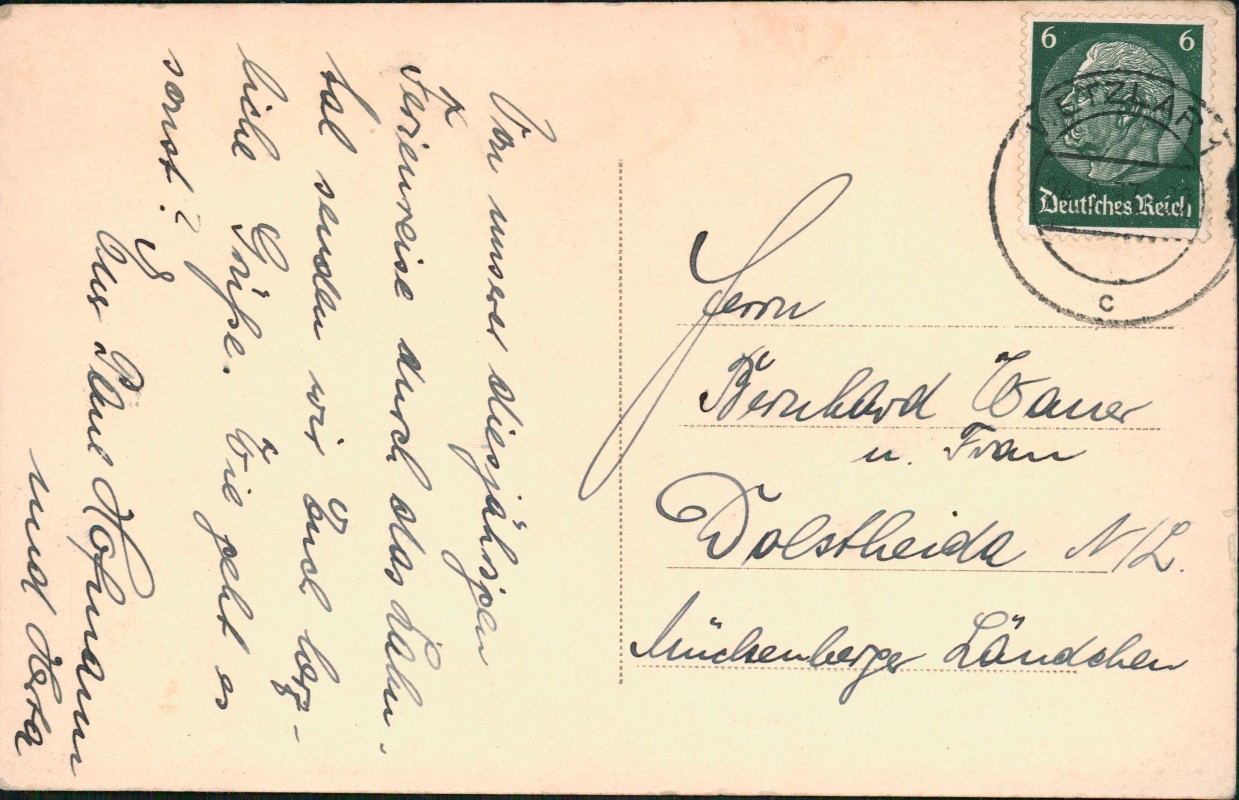 Von unserer diesjährigen
Ferienreise durch das Lahn-
tal senden wir Euch herz-
liche Grüße. Wie geht es
sonst?
Eur Paul Hofmann
und Herta
6 6
WETZLAR
Deutsches Reich
c
Herrn
Bernhard Wauer
u. Frau
Dolstheida N/L.
Mückenberger Ländchen